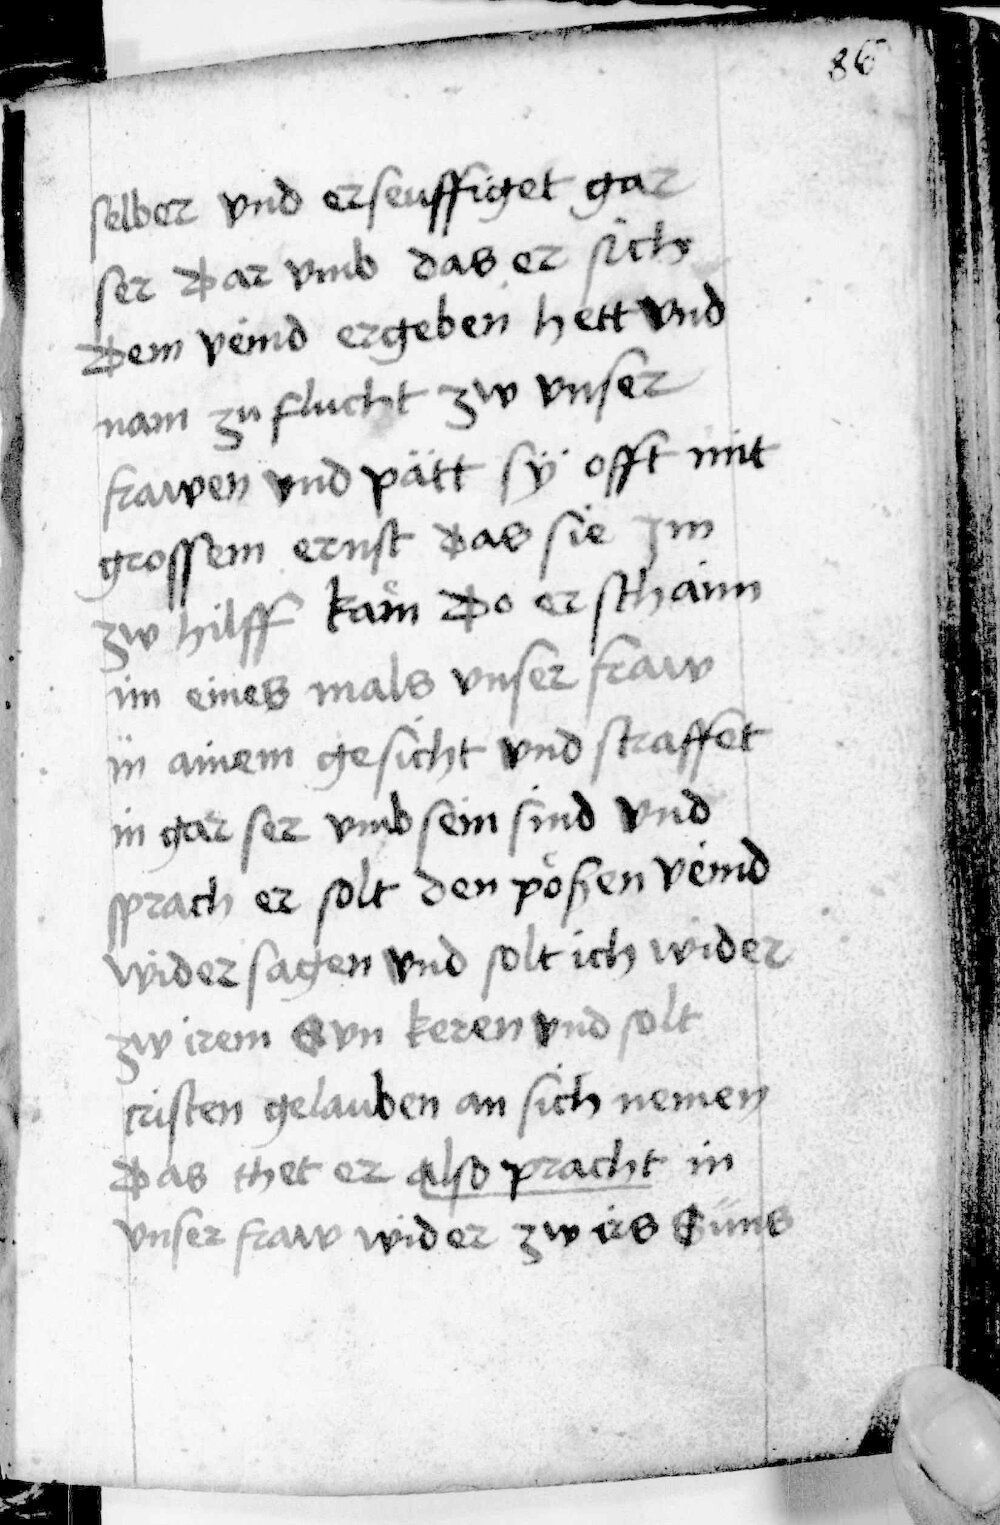 86
selber vnd erseuffiget gar
ser Dar vmb das er sich
Dem veind ergeben hett vnd
nam zu flucht zw vnser
frawen vnd pätt sÿ offt mit
grossem ernst Das sie Im
zw hilff käm Do er schain
im eines mals vnser fraw
in ainem gesicht vnd straffet
in gar ser vmb sein sind vnd
sprach er solt den pößen veind
wider sagen vnd solt ich wider
zw irem Svn keren vnd solt
cristen gelauben an sich nemen
Das thet er also pracht in
vnser fraw wider zw irs Süns